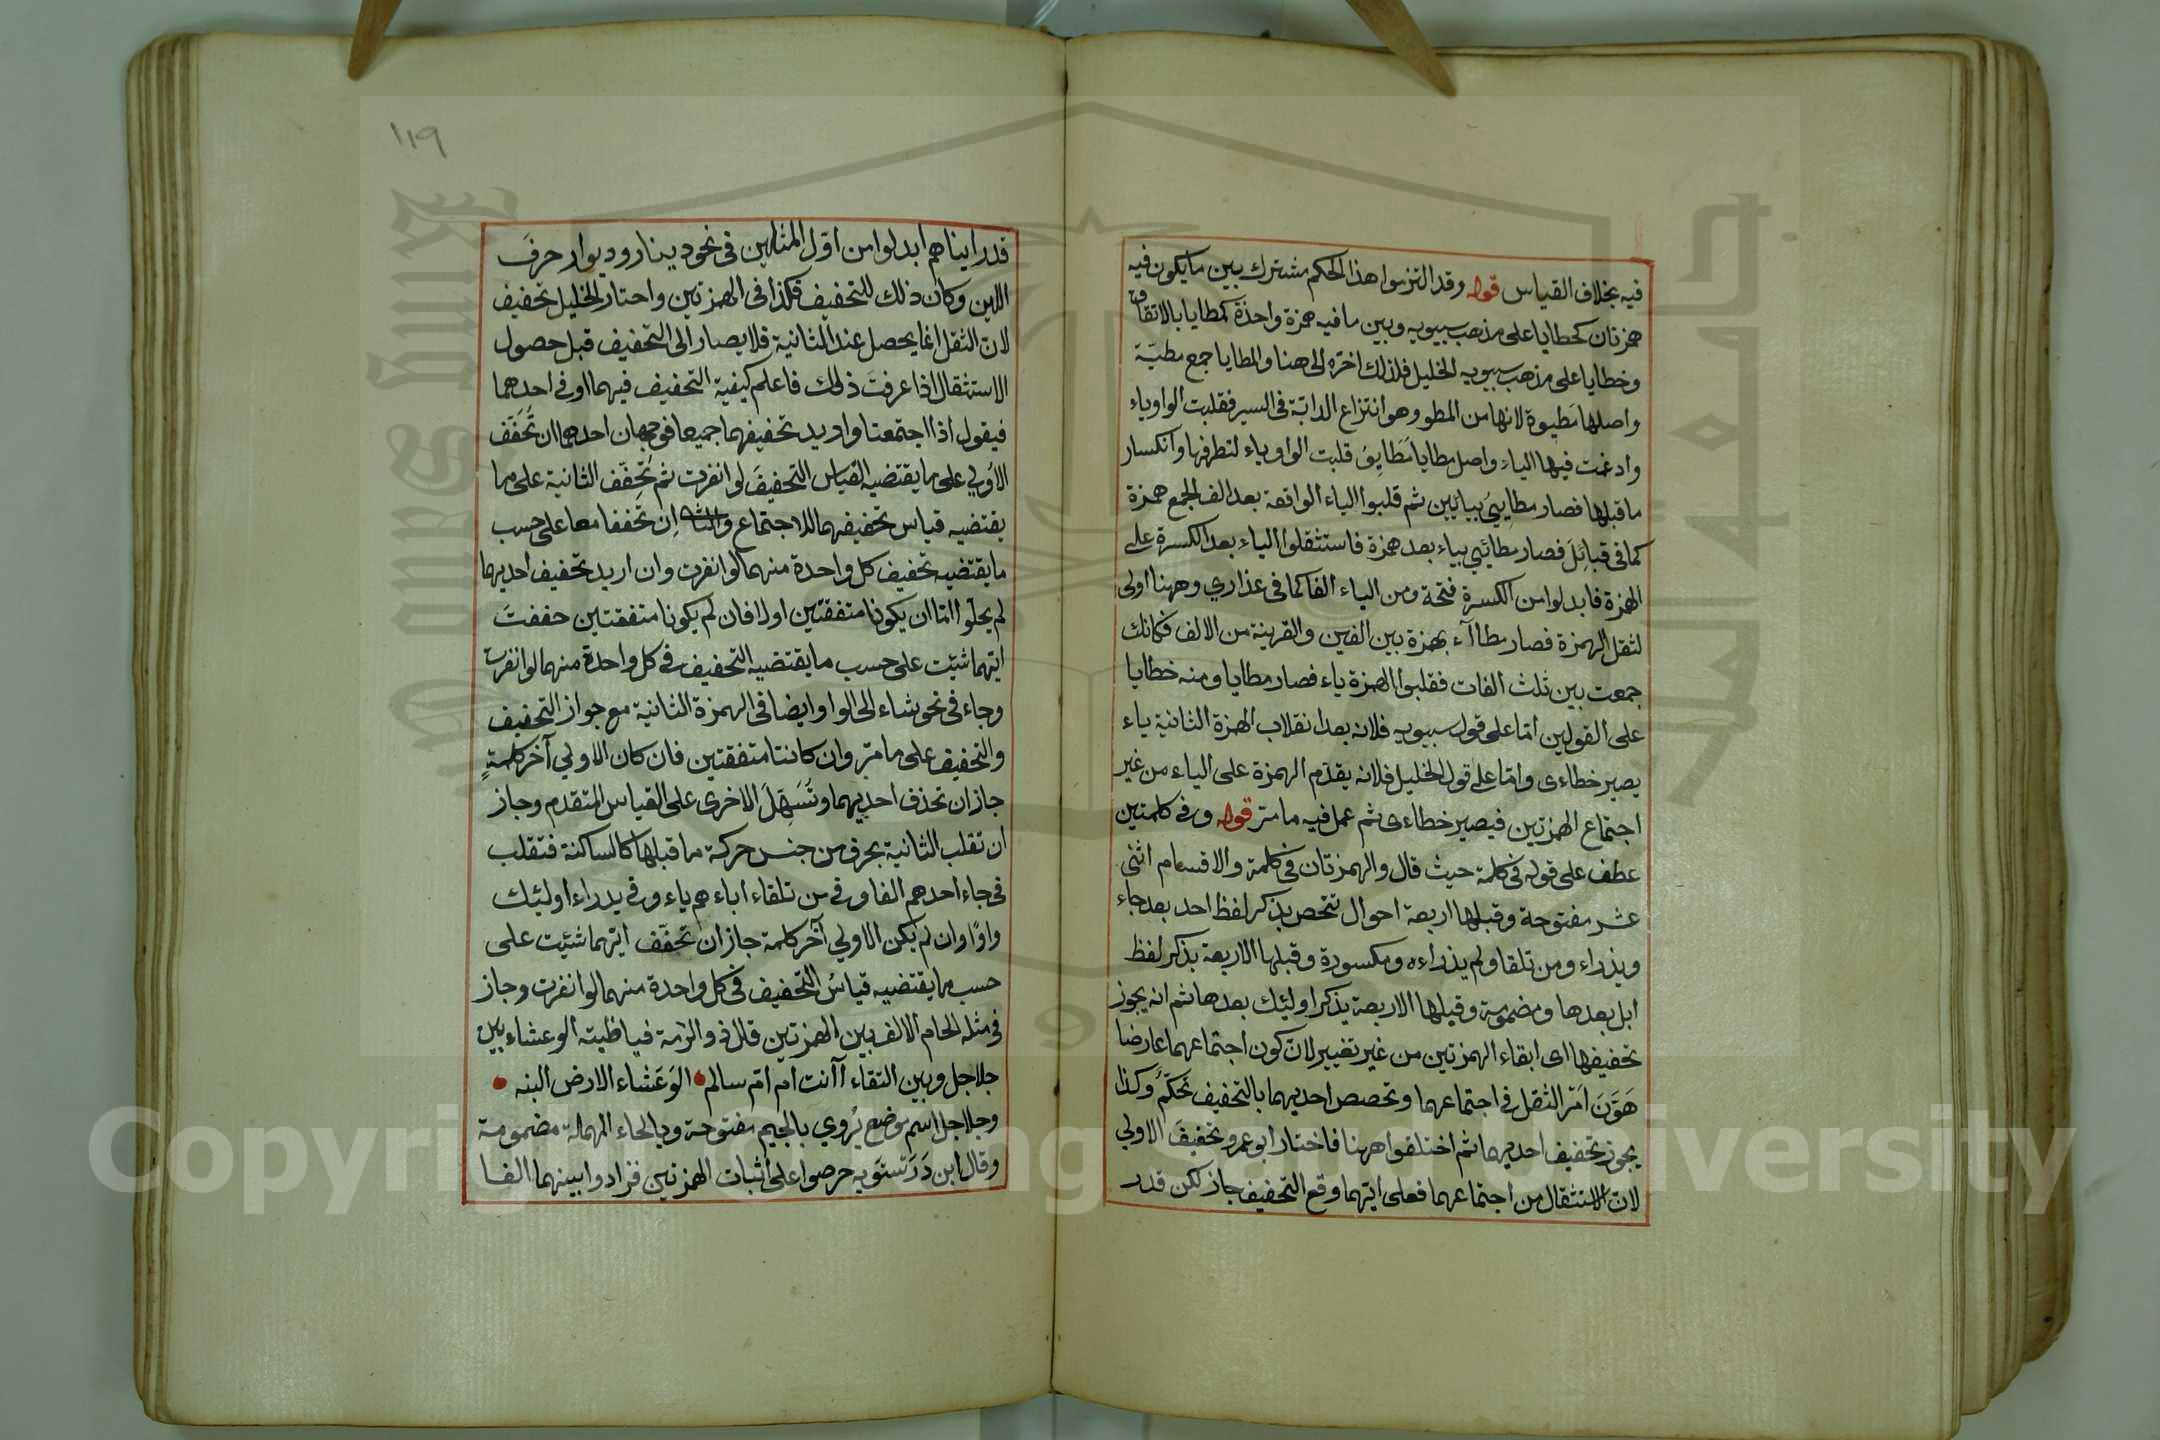 فيه بخلاف القياس قوله وقد التزموا هذا الحكم مشترك بين ما يكون فيه
همزتان كخطايا على مذهب سيبويه وبين ما فيه همزة واحدة كمطايا بالاتفاق
وخطايا على مذهب سيبويه الخليل فلذلك اخره الى هنا والمطايا جمع مطيّة
واصلها مَطيوة لانها من المطو وهو انتزاع الدابّة في السير فقلبت الواو ياء
وادغمت فيها الياء واصل مطايا مَطَايِوُ قلبت الواو ياء لتطرفها وانكسار
ما قبلها فصار مطاييُ بيايين ثم قلبوا الياء الواقعة بعد الف الجمع همزة
كما في قبائِلَ فصار مطائي بياء بعد همزة فاستثقلوا الياء بعد الكسرة على
الهمزة فابدلوا من الكسرة فتحة ومن الياء الفا كما في عذاري وههنا اولى
لثقل الهمزة فصار مطاآء بهمزة بين الفين والقرينة من الالف فكانك
جمعت بين ثلث الفات فقلبوا الهمزة ياء فصار مطايا ومنه خطايا
على القولين امّا على قول سيبويه فلانه بعد انقلاب الهمزة الثانية ياء
يصير خطاءى وامّا على قول الخليل فلانه يقدّم الهمزة على الياء من غير
اجتماع الهمزتين فيصير خطاءى ثم عمل فيه ما مرّ قوله وفي كلمتين
عطف على قوله في كلمة حيث قال والهمزتان في كلمة والاقسام اثنى
عشر مفتوحة وقبلها اربعة احوال تتحص بذكر لفظ احد بعد جاء
ويدراء ومن تلقا ولم يدراءه ومكسورة وقبلها الاربعة بذكر لفظ
ابل بعدها ومضمومة وقبلها الاربعة يذكر اولئك بعدها ثم انه يجوز
تخفيفها اى ابقاء الهمزتين من غير تغيير لان كون اجتماعهما عارضا
هَوَّنَ امَرَ الثقل في اجتماعهما وتخصص احديهما بالتخفيف تحكّمٌ وكذا
يجوز تخفيف احديهما ثم اختلفوا ههنا فاختار ابو عمرو تخفيفَ الاولي
لان الاستثقال من اجتماعهما فعلى ايّتهما وقع التخفيف جاز لكن قدر
١١٩
قد رايناهم ابدلوا من اوّل المثلين في نحو دينار وديوار حرفَ
اللين وكان ذلك للتخفيف فكذا في الهمزتين واختار الخليل تخفيف
لان الثقل انما يحصل عند الثانية فلا يصار الى التخفيف قبل حصول
الاستثقال اذا عرفت ذلك فاعلم كيفية التخفيف فيهما او في احدهما
فيقول اذا اجتمعتا واريد تخفيفهما جميعا فوجهان احدهما ان تُخَفَّف
الأولي على ما يقتضيه القياس التخفيفَ لو انفرت ثم تُخفَّف الثانية على ما
يقتضيه قياس تخفيفهما للاجتماع والثانى اِن تُخففا معا على حسب
ما يقتضيه تخفيف كل واحدة منهما لو انفرت وان اريد تخفيف احديهما
لم يخلوا امّا ان يكونا متفقتين اولا فان لم يكونا متفقتين خففتَ
ايّتهما شئت على حسب ما يقتضيه التخفيف في كل واحدة منهما لو انفرت
وجاء في نحو يشاء الى الواو ايضا في الهمزة الثانية مع جواز التخفيف
والتخفيف على ما مرّ وان كانتا متفقتين فان كان الاولي آخر كلمةٍ
جاز ان تحذف احديهما وتُسَهّلَ الاخرى على القياس المتقدم وجاز
ان تقلب الثانية بحرف من جنس حركة ما قبلها كالساكنة فتقلب
في جاء احدهم الفا وفي من تلقاء اباءهم ياء وفي يدراء اولئك
واوًا وان لم يكن الاولي آخر كلمة جاز ان تخفّف ايّهما شئيت على
حسب ما يقتضيه قياسُ التخفيف في كل واحدة منهما لو انفرت وجاز
في مثله الحام الالف بين الهمزتين قال ذو الرمّة فيا ظبية الوعشاء بين
جلاجل وبين التقاء آ أنت ام امّ سالم الوَعَشاء الارض البنه
وجلاجل اسم موضع يُروي بالجيم مفتوحة وبالحاء المهملة مضمومة
وقال ابن دَرَستَويه حرصوا على اثبات الهمزتين فزادوا بينهما الفا
Copyright © King Saud University
جامعة الملك
King Saud